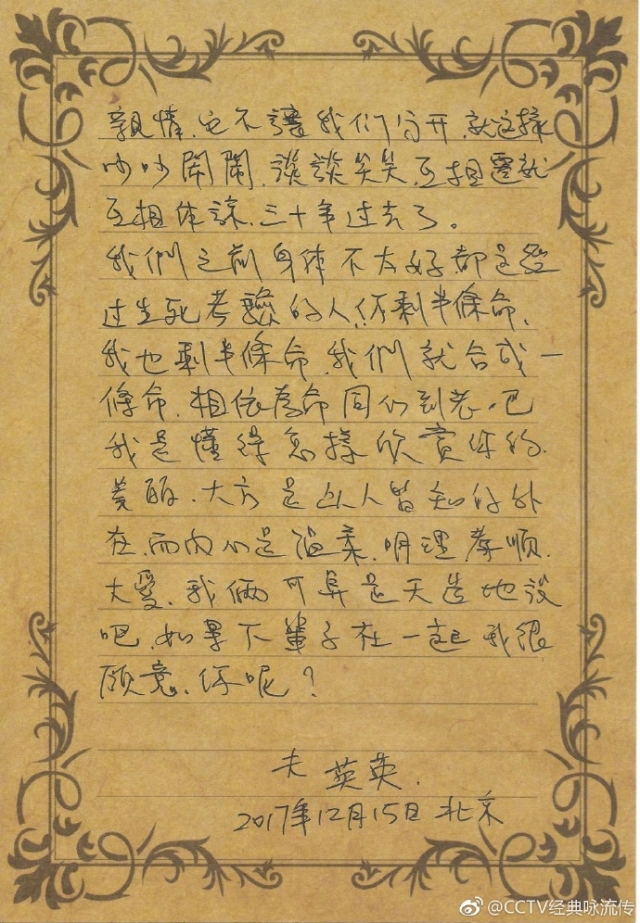 親情,它不讓我们分开,就这样
吵吵鬧鬧,談談笑笑,互相遷就
互相体諒,三十年过去了。
我們之前身体不太好都是经
过生死考驗的人,你剩半條命,
我也剩半條命,我們就合成一
條命,相依為命同们到老吧
我是懂得怎樣欣賞你的
美丽、大方是众人皆知的外
在,而内心是温柔,明理孝順,
大愛,我俩可算是天造地设
吧,如果下輩子在一起我很
願意,你呢?
夫 英英.
2017年12月15日 北京
@CCTV经典咏流传